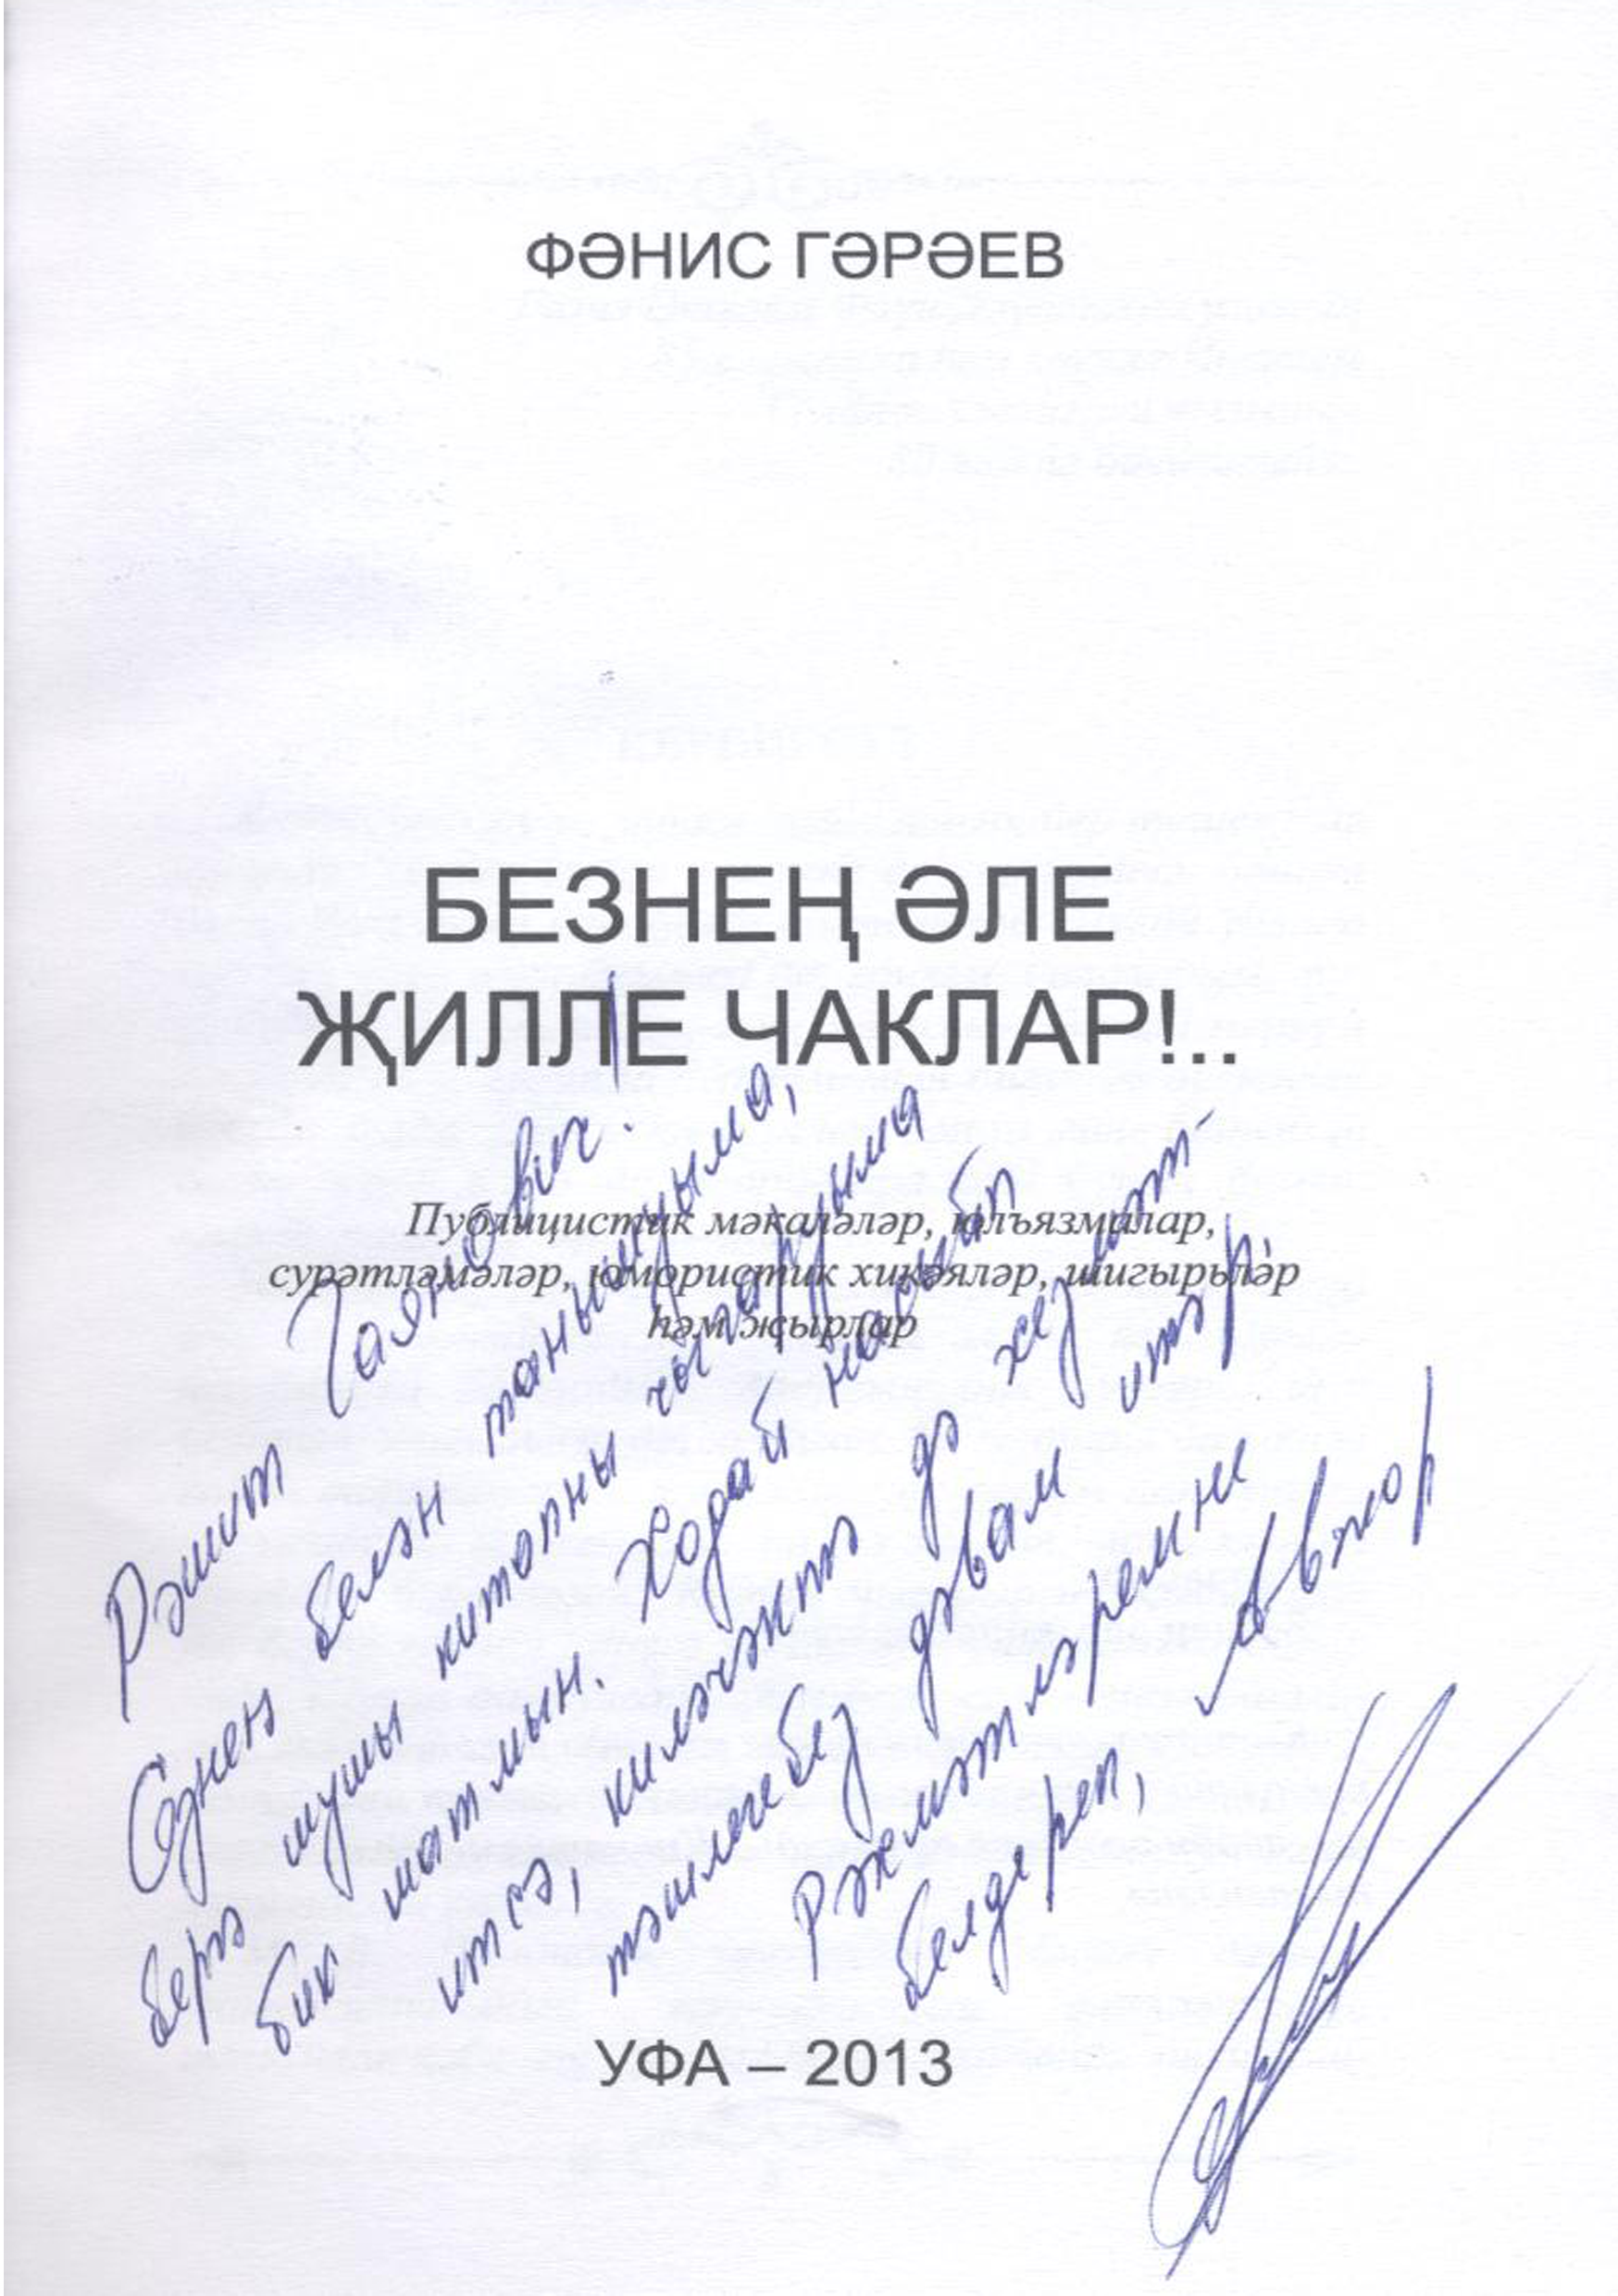 ФӘНИС ГӘРӘЕВ
БЕЗНЕҢ ӘЛЕ
ҖИЛЛЕ ЧАКЛАР!..
Публицистик мәкаләләр, юлъязмалар,
сурәтләмәләр, юмористик хикәяләр, шигырьләр
һәм җырлар
Рәшит Гаянович!
Сезнең белән танышуыма,
бергә шушы китапны чыгаруыма
бик шатмын. Ходай насыйп
итсә, киләчәктә дә хезмәт-
тәшлегебез дәвам итәр.
Рәхмәтләремне
белдереп, Автор
УФА – 2013